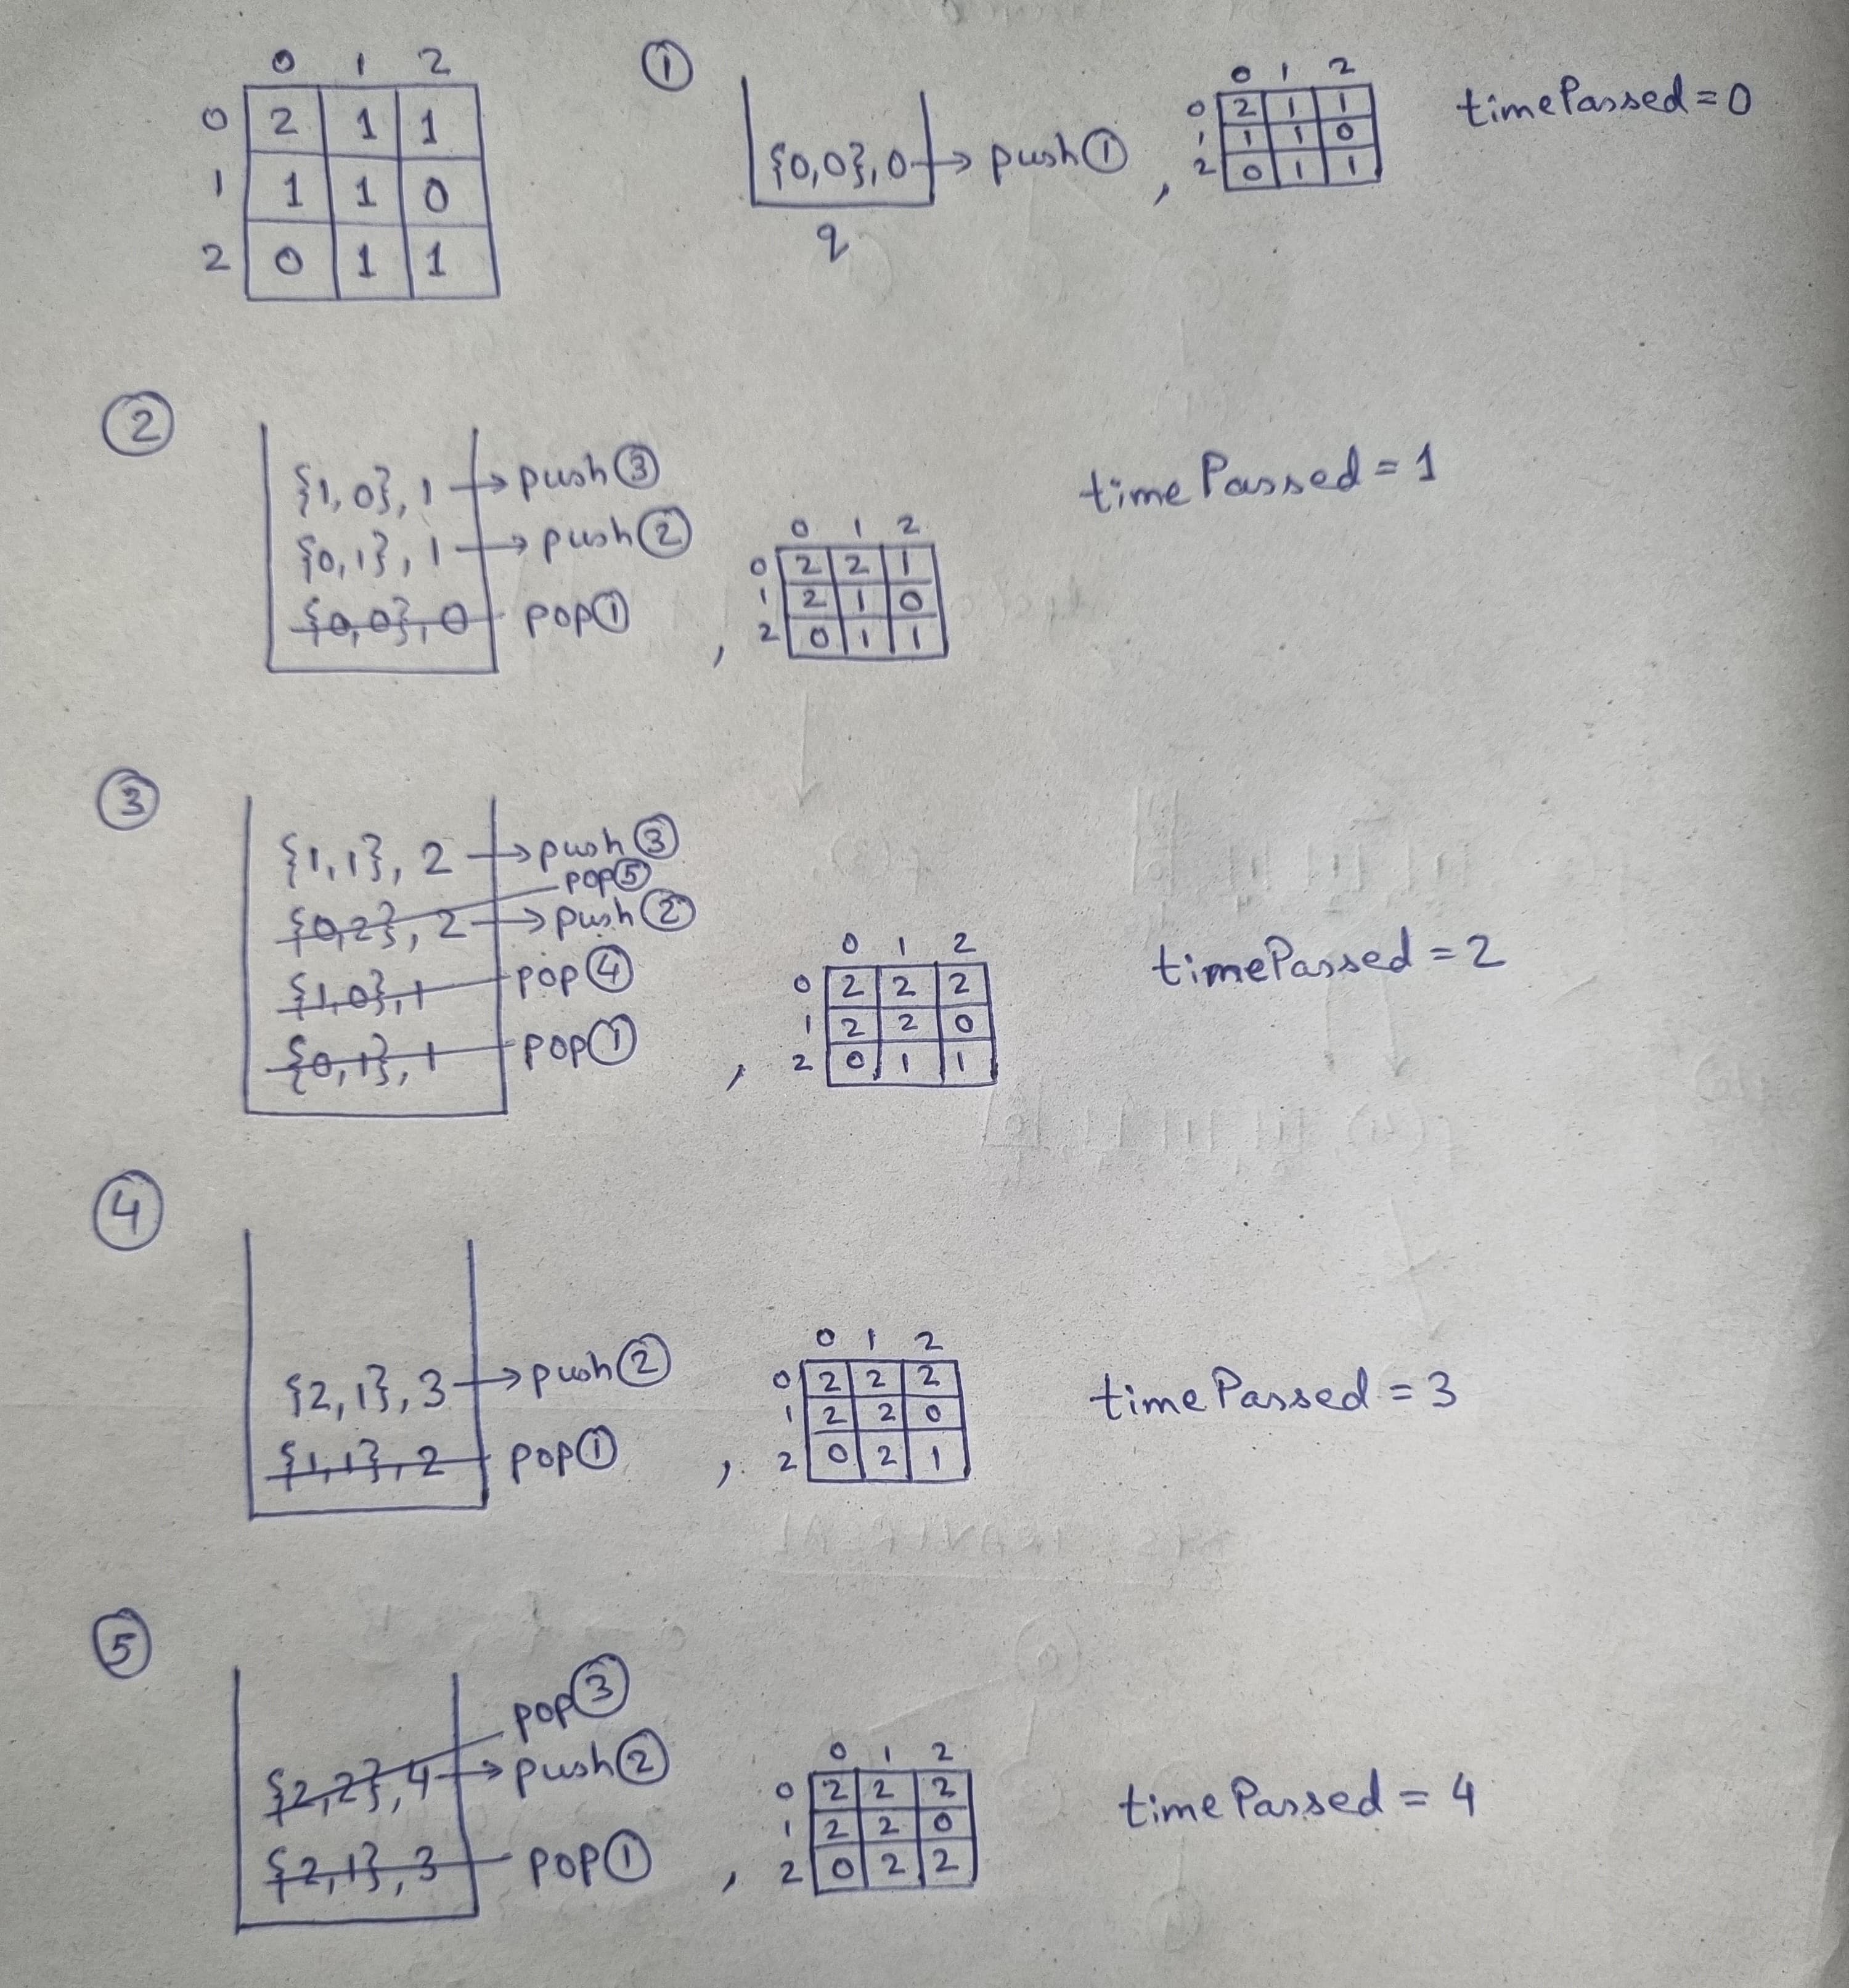 0 1 2
0 2 1 1
1 1 1 0
2 0 1 1
①
{0,0},0 → push ①
q
,
0 1 2
0 2 1 1
1 1 1 0
2 0 1 1
timePassed = 0
②
{1,0}, 1 → push ③
{0,1}, 1 → push ②
{0,0}, 0 pop ①
,
0 1 2
0 2 2 1
1 2 1 0
2 0 1 1
timePassed = 1
③
{1,1}, 2 → push ③
pop ⑤
{0,2}, 2 → push ②
{1,0}, 1 pop ④
{0,1}, 1 pop ①
,
0 1 2
0 2 2 2
1 2 2 0
2 0 1 1
timePassed = 2
④
{2,1}, 3 → push ②
{1,1}, 2 pop ①
,
0 1 2
0 2 2 2
1 2 2 0
2 0 2 1
timePassed = 3
⑤
pop ③
{2,2}, 4 → push ②
{2,1}, 3 pop ①
,
0 1 2
0 2 2 2
1 2 2 0
2 0 2 2
timePassed = 4